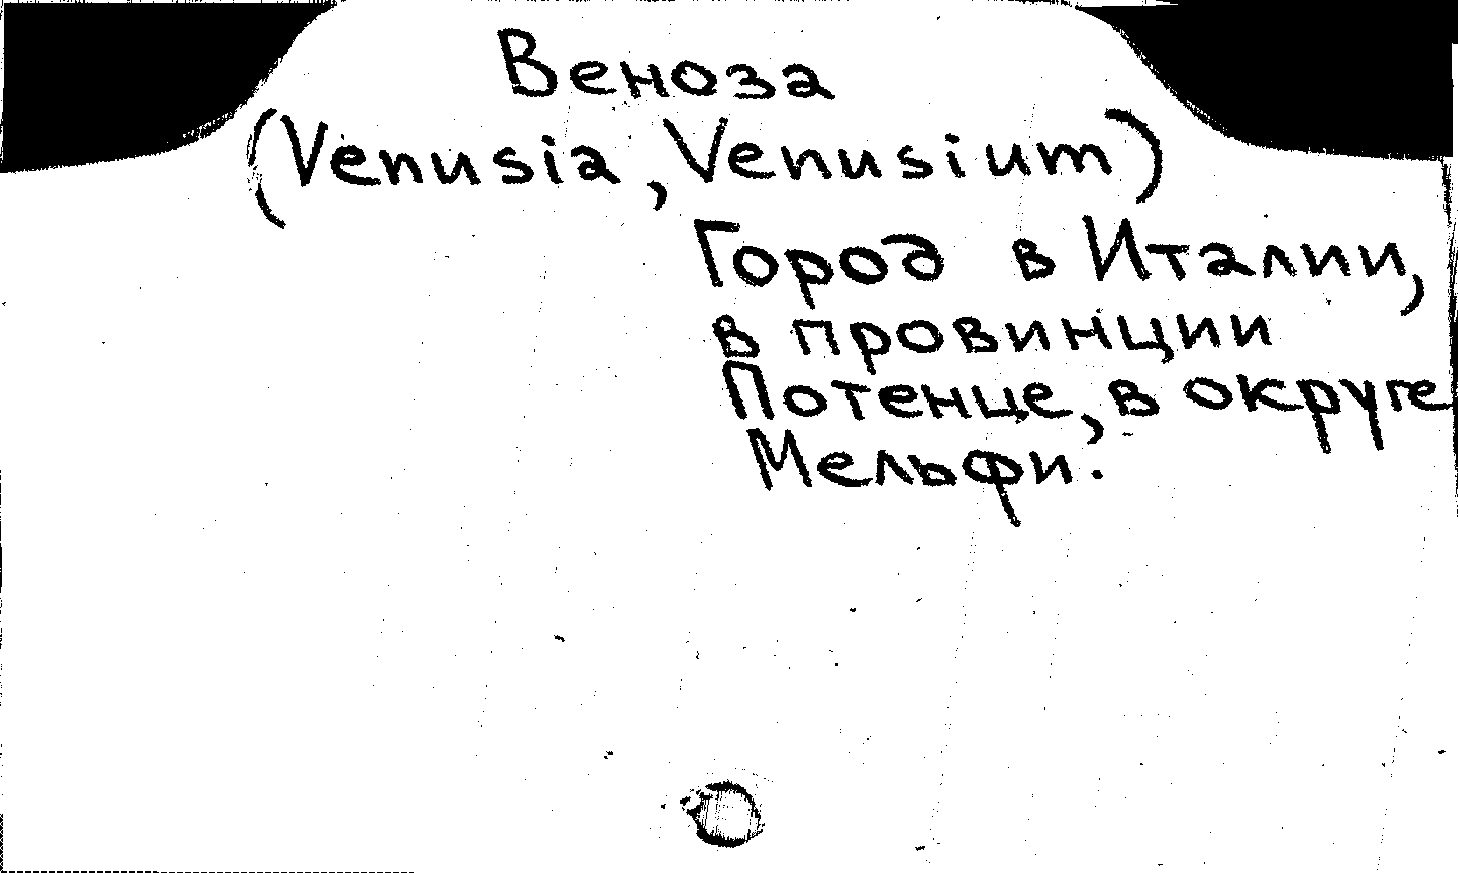 Веноза
(Venusia, Venusium)
Город в Италии,
в провинции
Потенце, в округе
Мельфи.